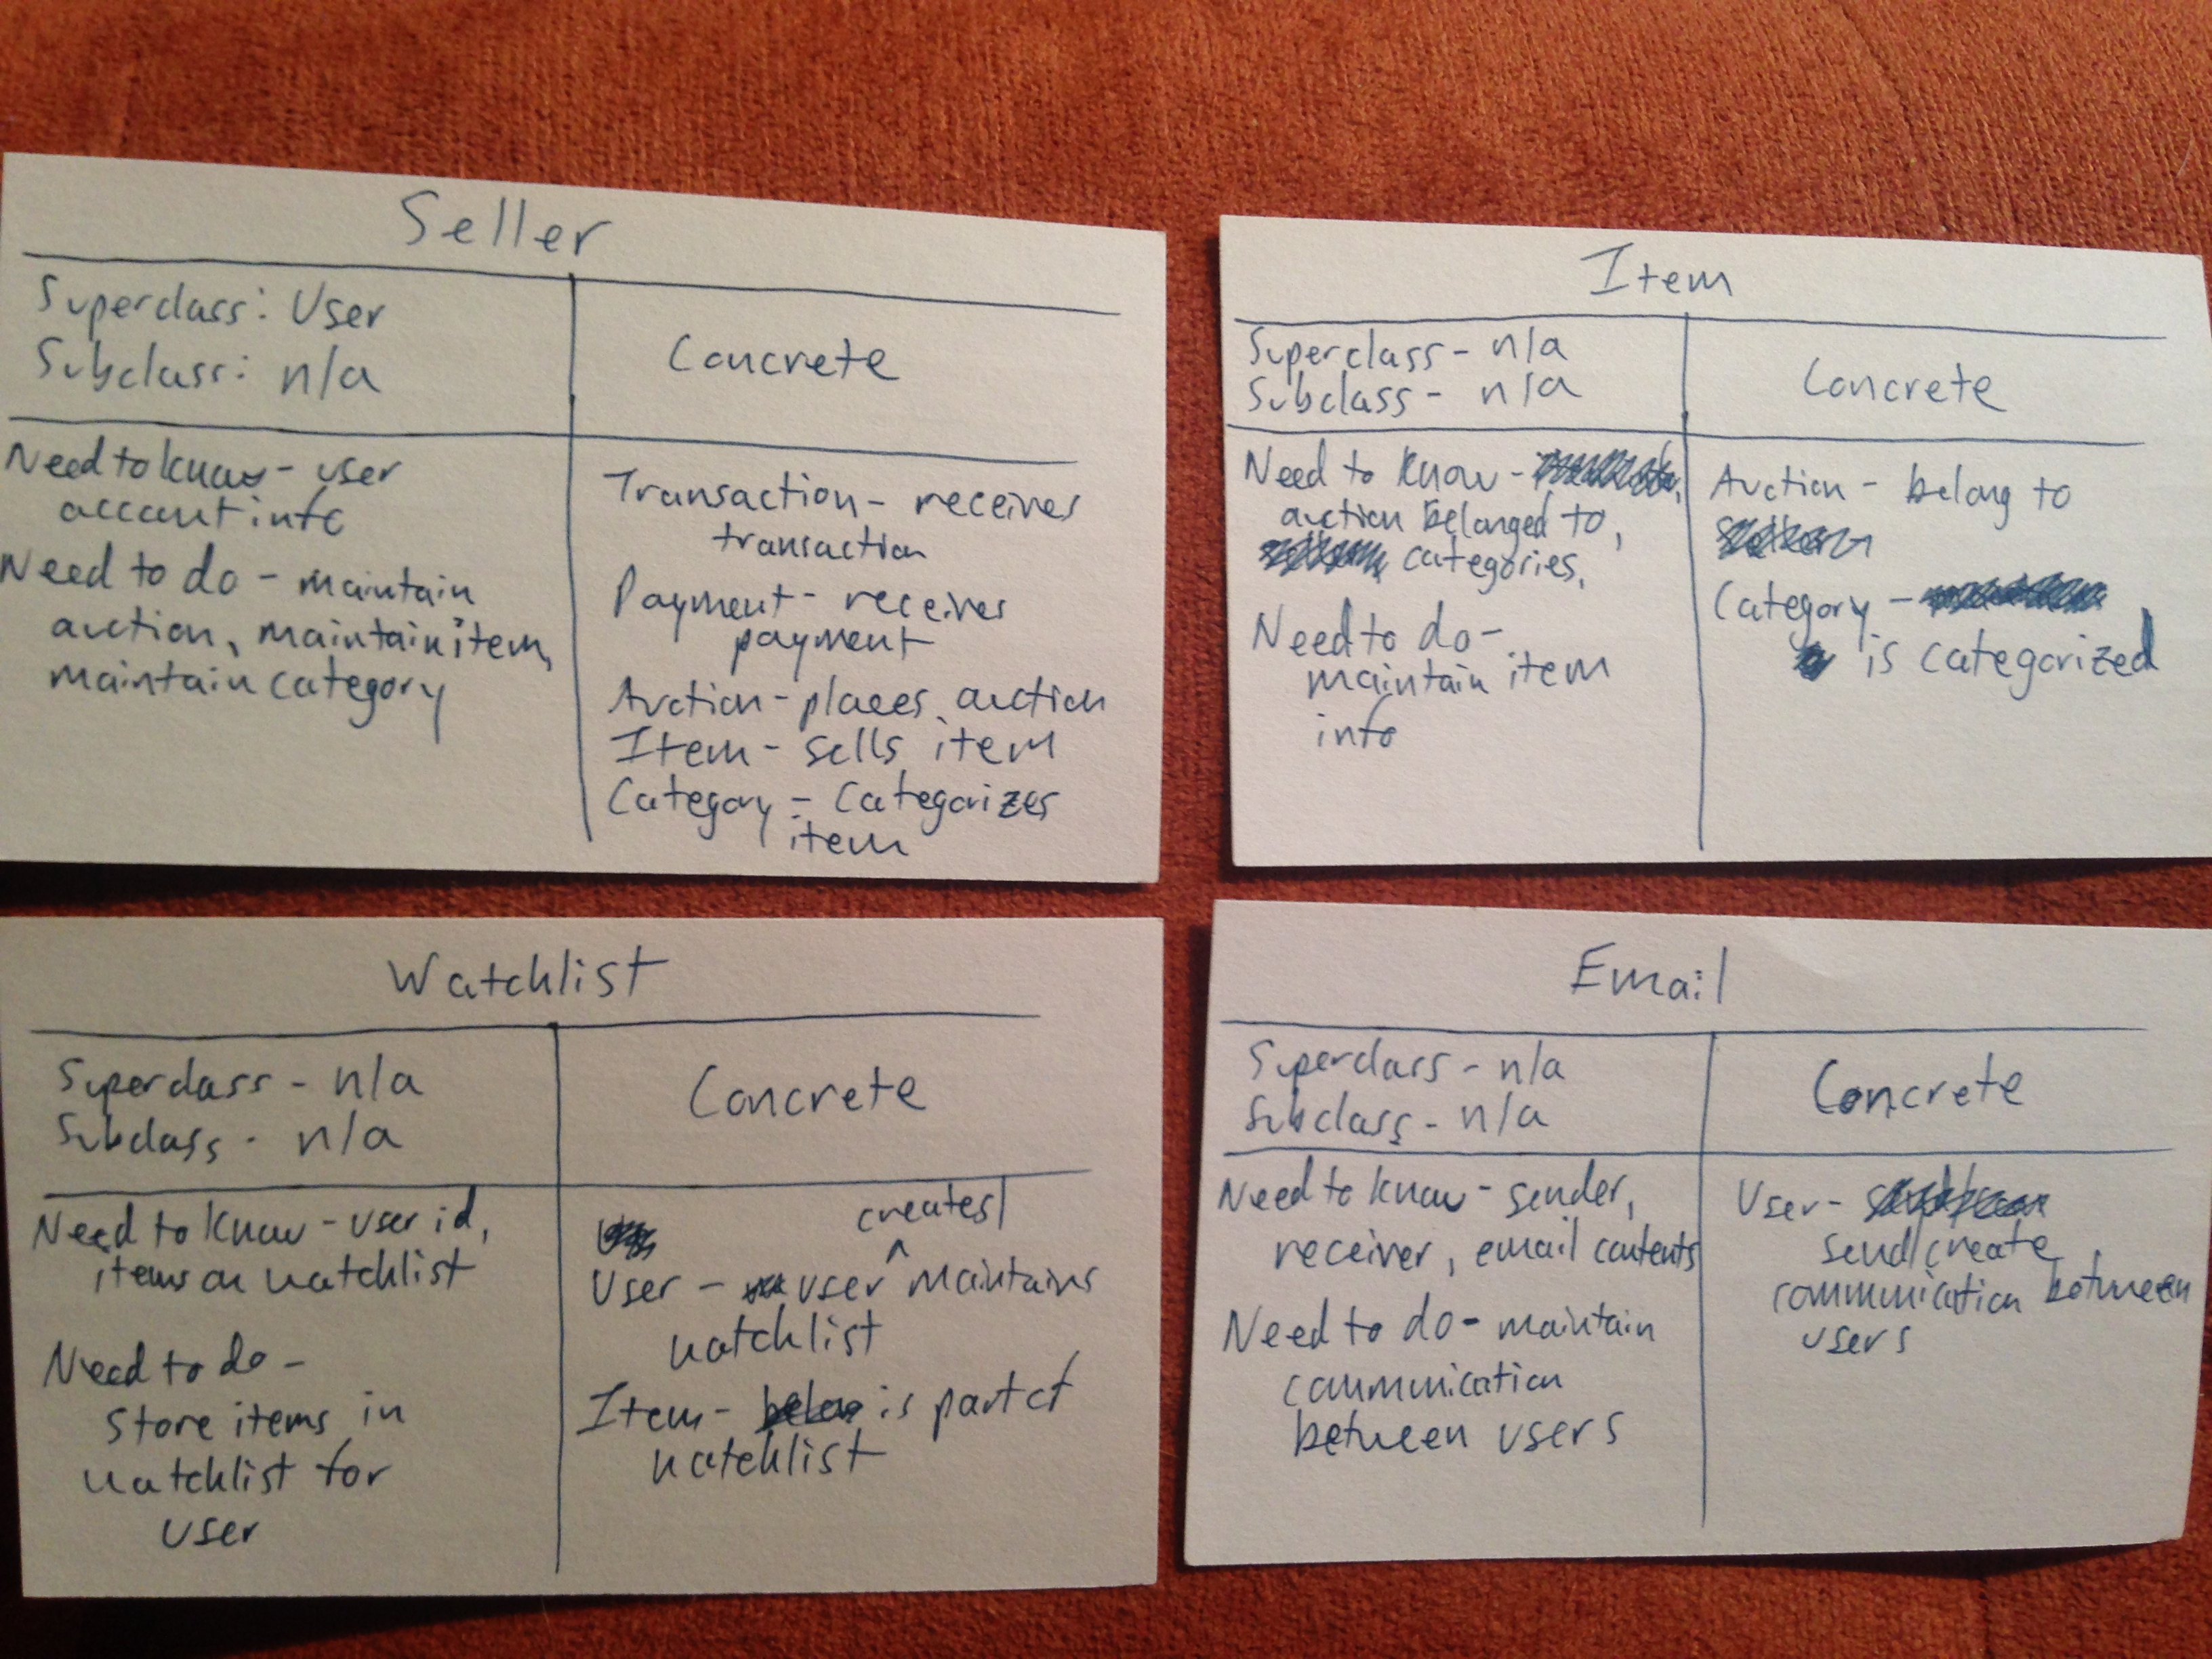 Seller
Superclass: User
Subclass: n/a
Concrete
Need to know - user
account info
Need to do - maintain
auction, maintain item,
maintain category
Transaction - receives
transaction
Payment - receives
payment
Auction - places auction
Item - sells item
Category - categorizes
item
Item
Superclass - n/a
Subclass - n/a
Concrete
Need to know -
auction belonged to,
categories,
Need to do -
maintain item
info
Auction - belong to
Category -
is categorized
Watchlist
Superclass - n/a
Subclass - n/a
Concrete
Need to know - user id,
items on watchlist
Need to do -
store items in
watchlist for
user
creates/
User - user ^ maintains
watchlist
Item - is part of
watchlist
Email
Superclass - n/a
Subclass - n/a
Concrete
Need to know - sender,
receiver, email contents
Need to do - maintain
communication
between users
User -
send/create
communication between
users